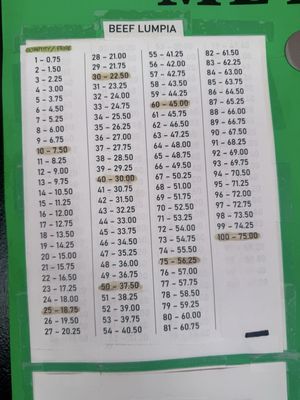 BEEF LUMPIA
QUANTITY / PRICE
1 - 0.75
2 - 1.50
3 - 2.25
4 - 3.00
5 - 3.75
6 - 4.50
7 - 5.25
8 - 6.00
9 - 6.75
10 - 7.50
11 - 8.25
12 - 9.00
13 - 9.75
14 - 10.50
15 - 11.25
16 - 12.00
17 - 12.75
18 - 13.50
19 - 14.25
20 - 15.00
21 - 15.75
22 - 16.50
23 - 17.25
24 - 18.00
25 - 18.75
26 - 19.50
27 - 20.25
28 - 21.00
29 - 21.75
30 - 22.50
31 - 23.25
32 - 24.00
33 - 24.75
34 - 25.50
35 - 26.25
36 - 27.00
37 - 27.75
38 - 28.50
39 - 29.25
40 - 30.00
41 - 30.75
42 - 31.50
43 - 32.25
44 - 33.00
45 - 33.75
46 - 34.50
47 - 35.25
48 - 36.00
49 - 36.75
50 - 37.50
51 - 38.25
52 - 39.00
53 - 39.75
54 - 40.50
55 - 41.25
56 - 42.00
57 - 42.75
58 - 43.50
59 - 44.25
60 - 45.00
61 - 45.75
62 - 46.50
63 - 47.25
64 - 48.00
65 - 48.75
66 - 49.50
67 - 50.25
68 - 51.00
69 - 51.75
70 - 52.50
71 - 53.25
72 - 54.00
73 - 54.75
74 - 55.50
75 - 56.25
76 - 57.00
77 - 57.75
78 - 58.50
79 - 59.25
80 - 60.00
81 - 60.75
82 - 61.50
83 - 62.25
84 - 63.00
85 - 63.75
86 - 64.50
87 - 65.25
88 - 66.00
89 - 66.75
90 - 67.50
91 - 68.25
92 - 69.00
93 - 69.75
94 - 70.50
95 - 71.25
96 - 72.00
97 - 72.75
98 - 73.50
99 - 74.25
100 - 75.00